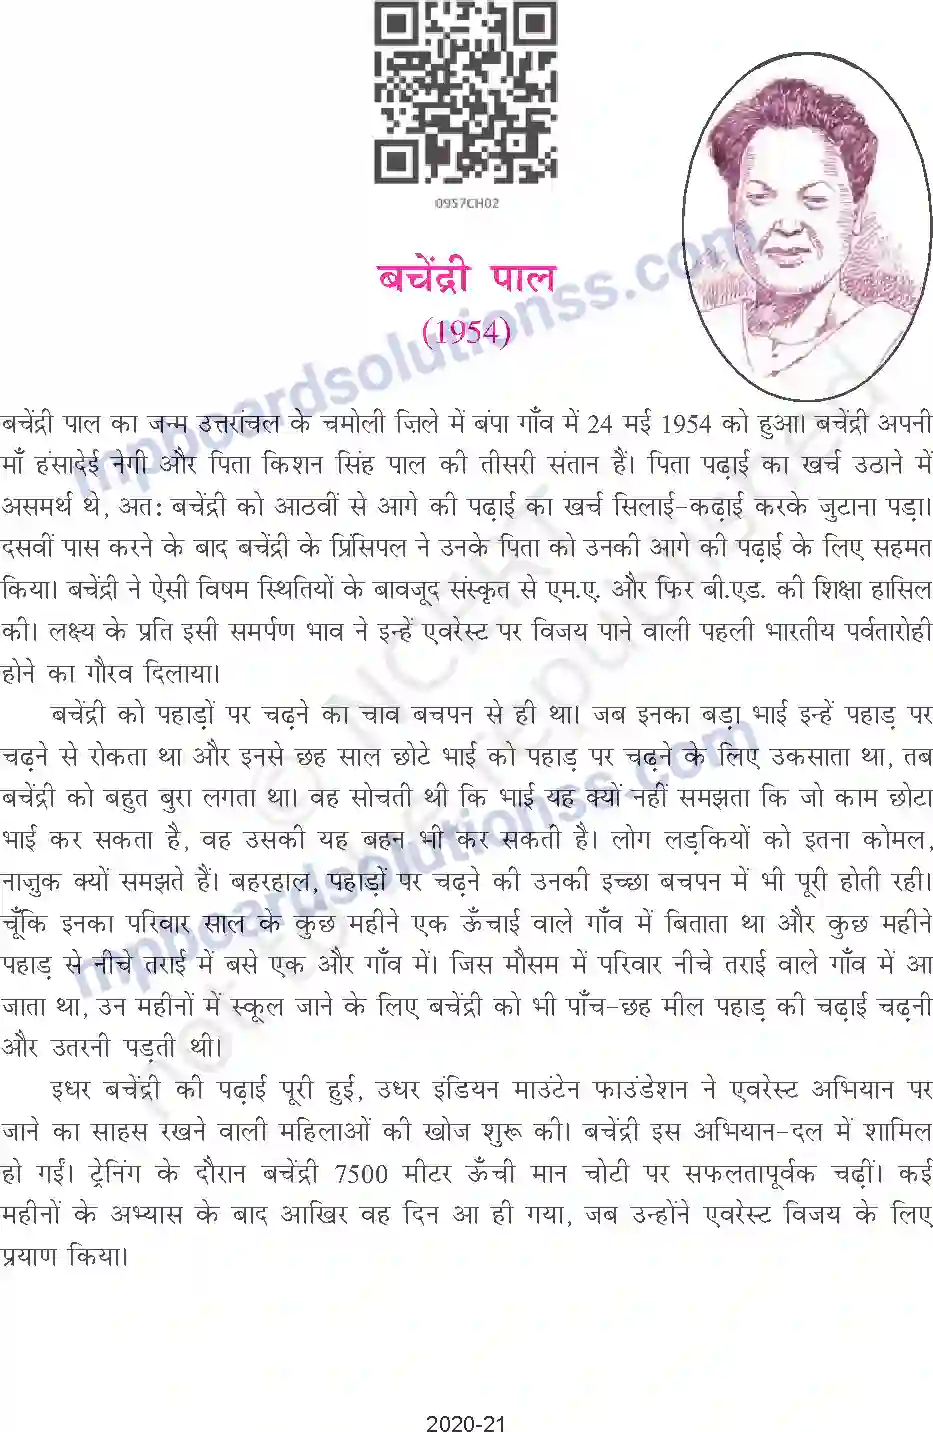 0957CH02
बचेंद्री पाल
(1954)
बचेंद्री पाल का जन्म उत्तरांचल के चमोली ज़िले में बंपा गाँव में 24 मई 1954 को हुआ। बचेंद्री अपनी
माँ हंसादेई नेगी और पिता किशन सिंह पाल की तीसरी संतान हैं। पिता पढ़ाई का खर्च उठाने में
असमर्थ थे, अत: बचेंद्री को आठवीं से आगे की पढ़ाई का खर्च सिलाई-कढ़ाई करके जुटाना पड़ा।
दसवीं पास करने के बाद बचेंद्री के प्रिंसिपल ने उनके पिता को उनकी आगे की पढ़ाई के लिए सहमत
किया। बचेंद्री ने ऐसी विषम स्थितियों के बावजूद संस्कृत से एम.ए. और फिर बी.एड. की शिक्षा हासिल
की। लक्ष्य के प्रति इसी समर्पण भाव ने इन्हें एवरेस्ट पर विजय पाने वाली पहली भारतीय पर्वतारोही
होने का गौरव दिलाया।
बचेंद्री को पहाड़ों पर चढ़ने का चाव बचपन से ही था। जब इनका बड़ा भाई इन्हें पहाड़ पर
चढ़ने से रोकता था और इनसे छह साल छोटे भाई को पहाड़ पर चढ़ने के लिए उकसाता था, तब
बचेंद्री को बहुत बुरा लगता था। वह सोचती थी कि भाई यह क्यों नहीं समझता कि जो काम छोटा
भाई कर सकता है, वह उसकी यह बहन भी कर सकती है। लोग लड़कियों को इतना कोमल,
नाज़ुक क्यों समझते हैं। बहरहाल, पहाड़ों पर चढ़ने की उनकी इच्छा बचपन में भी पूरी होती रही।
चूँकि इनका परिवार साल के कुछ महीने एक ऊँचाई वाले गाँव में बिताता था और कुछ महीने
पहाड़ से नीचे तराई में बसे एक और गाँव में। जिस मौसम में परिवार नीचे तराई वाले गाँव में आ
जाता था, उन महीनों में स्कूल जाने के लिए बचेंद्री को भी पाँच-छह मील पहाड़ की चढ़ाई चढ़नी
और उतरनी पड़ती थी।
इधर बचेंद्री की पढ़ाई पूरी हुई, उधर इंडियन माउंटेन फाउंडेशन ने एवरेस्ट अभियान पर
जाने का साहस रखने वाली महिलाओं की खोज शुरू की। बचेंद्री इस अभियान-दल में शामिल
हो गईं। ट्रेनिंग के दौरान बचेंद्री 7500 मीटर ऊँची मान चोटी पर सफलतापूर्वक चढ़ीं। कई
महीनों के अभ्यास के बाद आखिर वह दिन आ ही गया, जब उन्होंने एवरेस्ट विजय के लिए
प्रयाण किया।
mpboardsolutionss.com
mpboardsolutionss.com
© NCERT
not to be republished
2020-21